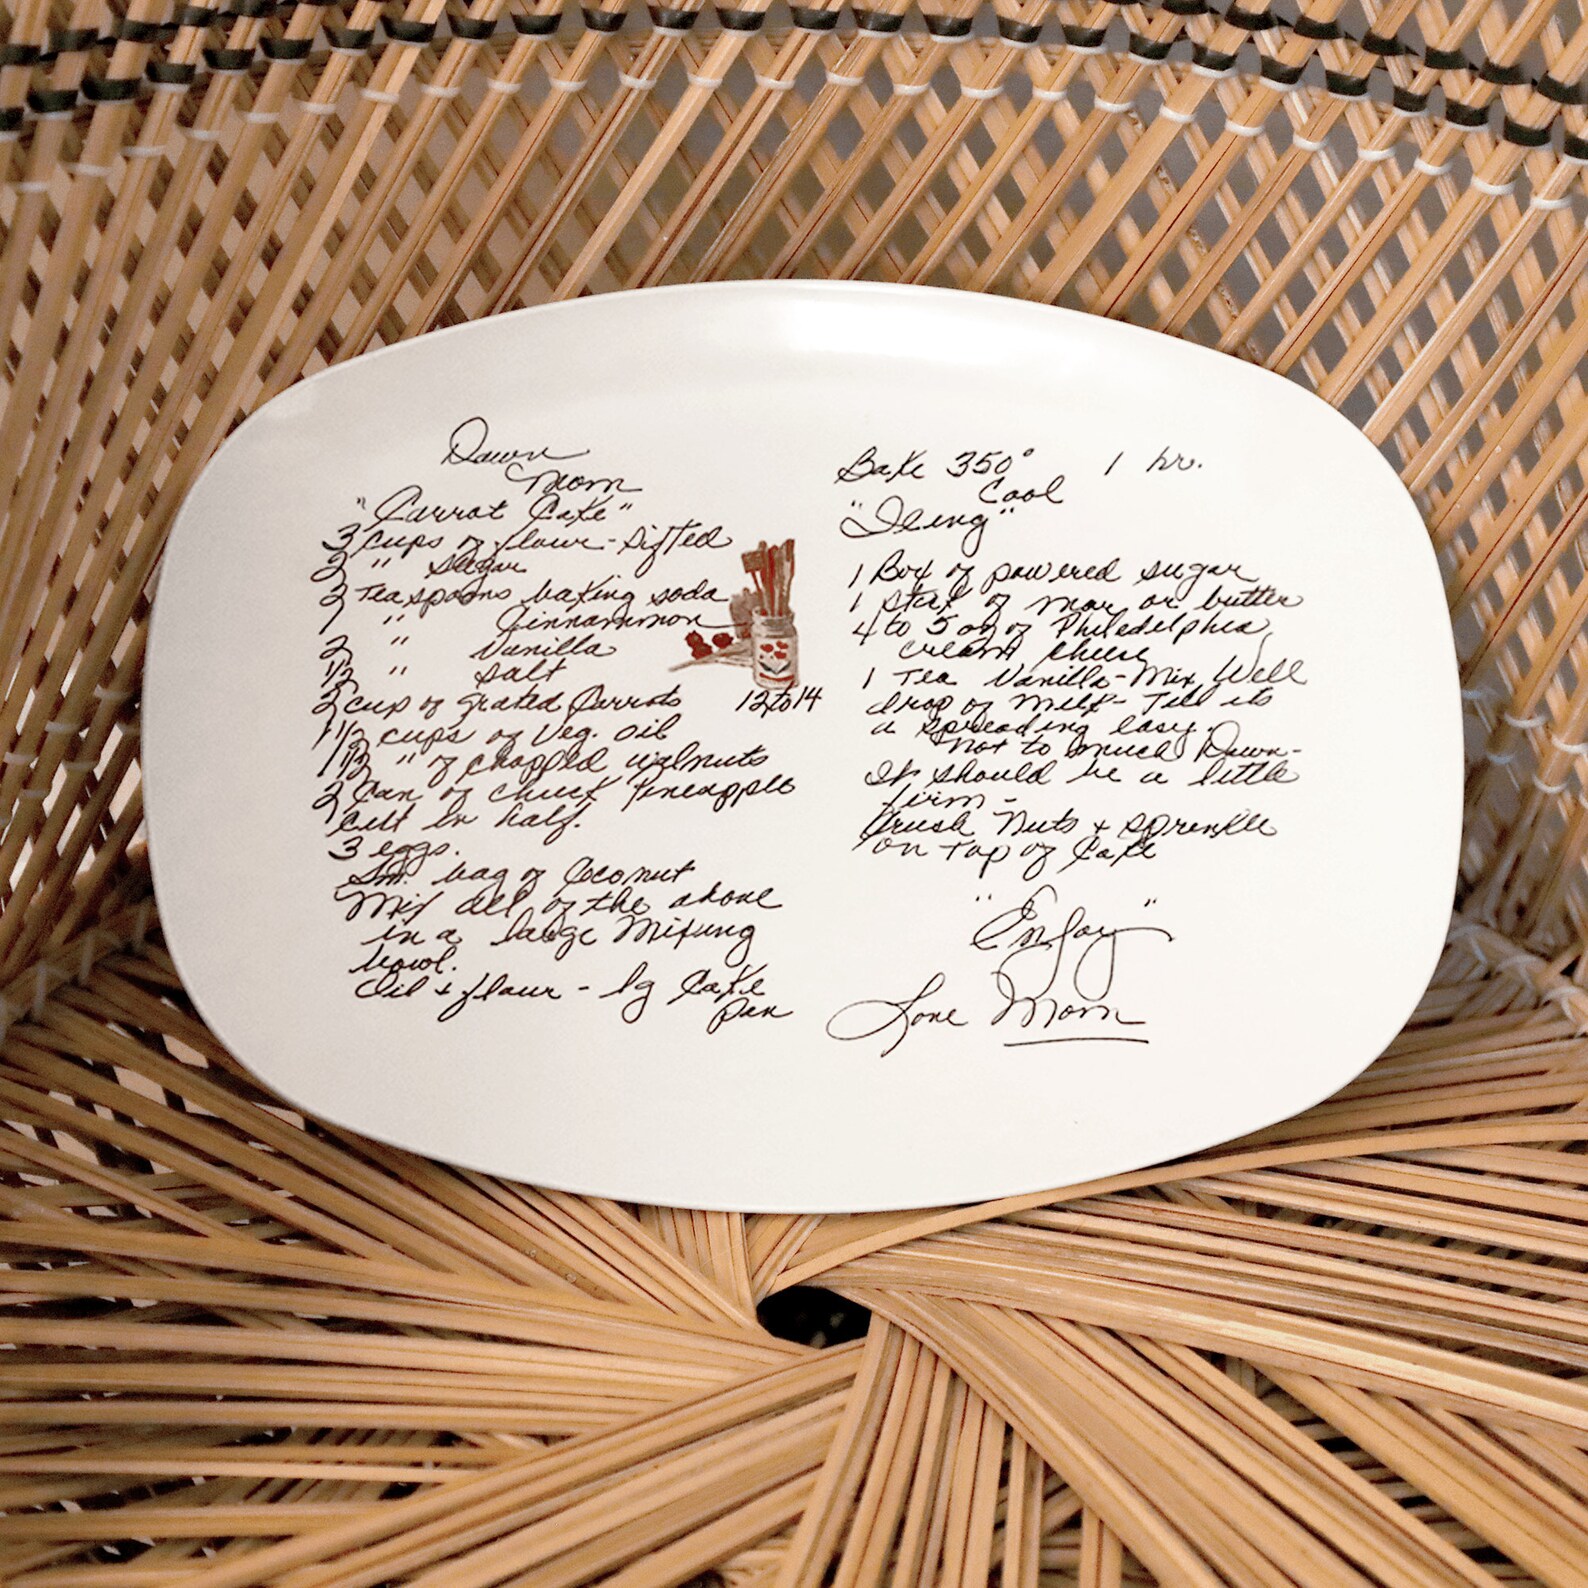 Dawn
Mom
"Carrot Cake"
3 cups of flour - sifted
2 " sugar
2 Teaspoons baking soda
1 " Cinnammon
2 " Vanilla
1/2 " salt
2 cup of grated Carrots 12 to 14
1 1/2 cups of Veg. oil
1 1/2 " of chopped walnuts
2 Can of chuck Pineapple
cut in half.
3 eggs.
Sm. bag of Coconut
Mix all of the above
in a large Mixing
bowl.
Oil + flour - lg Cake
pan
Bake 350° 1 hr.
Cool
"Icing"
1 Box of powered sugar
1 stick of mar or butter
4 to 5 oz of Philedelphia
cream cheese
1 Tea Vanilla - Mix Well
drop of Milk - Till its
a spreading easy.
Not to much Dawn -
It should be a little
firm -
Crush Nuts + sprinkle
on top of Cake
"Enjoy"
Love Mom